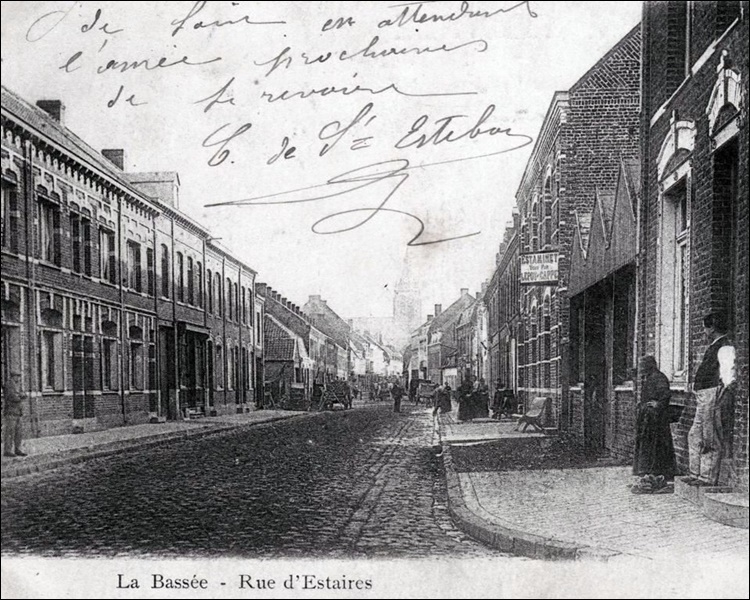 de Saint en attendant
l'année prochaine
de se revoir
C. de Ste Estebon
ESTAMINET
La Bassée - Rue d'Estaires